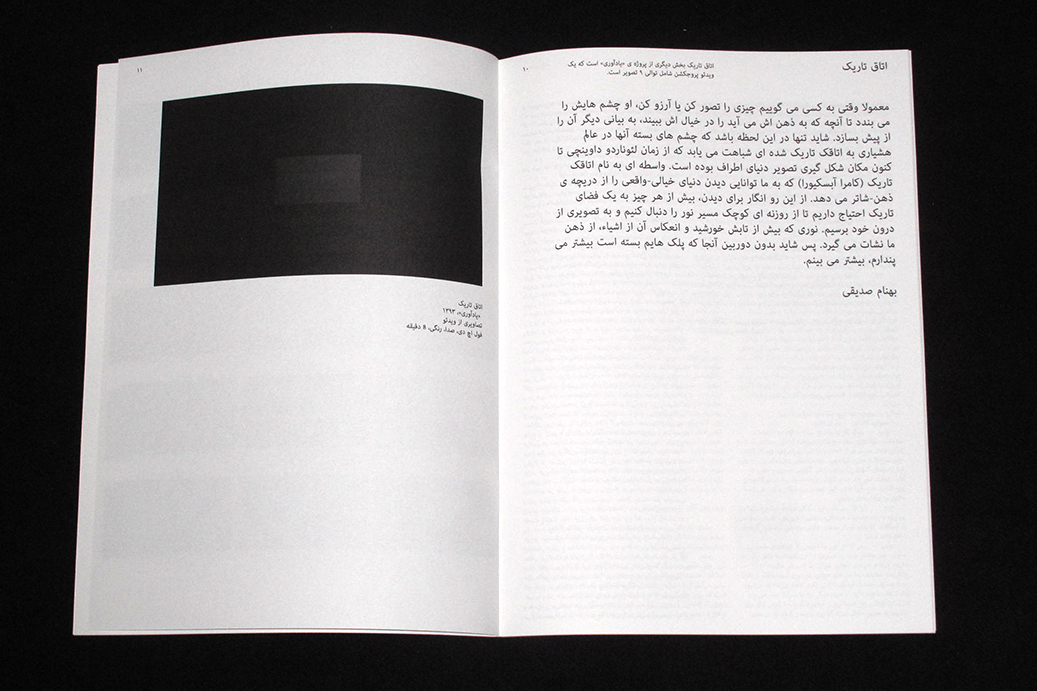 اتاق تاریک
اتاق تاریک بخش دیگری از پروژه ی «یادآوری» است که یک
ویدئو پروجکشن شامل توالی ۹ تصویر است.
۱۰
معمولا وقتی به کسی می گوییم چیزی را تصور کن یا آرزو کن، او چشم هایش را
می بندد تا آنچه که به ذهن اش می آید را در خیال اش ببیند، به بیانی دیگر آن را
از پیش بسازد. شاید تنها در این لحظه باشد که چشم های بسته آنها در عالم
هشیاری به اتاقک تاریک شده ای شباهت می یابد که از زمان لئوناردو داوینچی تا
کنون مکان شکل گیری تصویر دنیای اطراف بوده است. واسطه ای به نام اتاقک
تاریک (کامرا آبسکیورا) که به ما توانایی دیدن دنیای خیالی-واقعی را از دریچه ی
ذهن-شاتر می دهد. از این رو انگار برای دیدن، بیش از هر چیز به یک فضای
تاریک احتیاج داریم تا از روزنه ای کوچک مسیر نور را دنبال کنیم و به تصویری از
درون خود برسیم. نوری که بیش از تابش خورشید و انعکاس آن از اشیاء، از ذهن
ما نشات می گیرد. پس شاید بدون دوربین آنجا که پلک هایم بسته است بیشتر می
پندارم، بیشتر می بینم.
بهنام صدیقی
۱۱
اتاق تاریک
«یادآوری»، ۱۳۹۳
تصاویری از ویدئو
فول اچ دی، صدا، رنگی، 8 دقیقه